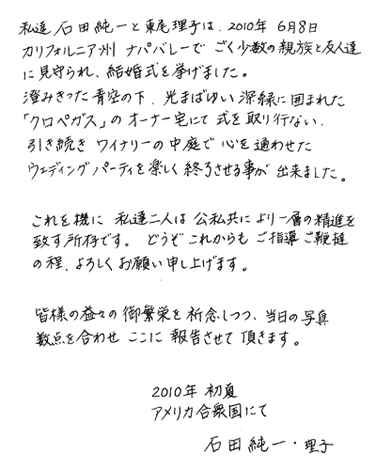 私達 石田純一と東尾理子は、2010年 6月8日
カリフォルニア州 ナパバレーで ごく少数の親族と友人達
に見守られ、結婚式を挙げました。
澄みきった青空の下、光まばゆい深緑に囲まれた
「クロペガス」のオーナー宅にて 式を取り行ない、
引き続き ワイナリーの中庭で 心を通わせた
ウェディングパーティを楽しく終了させる事が 出来ました。
これを機に 私達二人は 公私共に より一層の精進を
致す所存です。 どうぞ これからも ご指導ご鞭撻
の程、よろしくお願い申し上げます。
皆様の益々の御繁栄を祈念しつつ、当日の写真
数点を合わせ ここに 報告させて 頂きます。
2010年 初夏
アメリカ合衆国にて
石田純一・理子